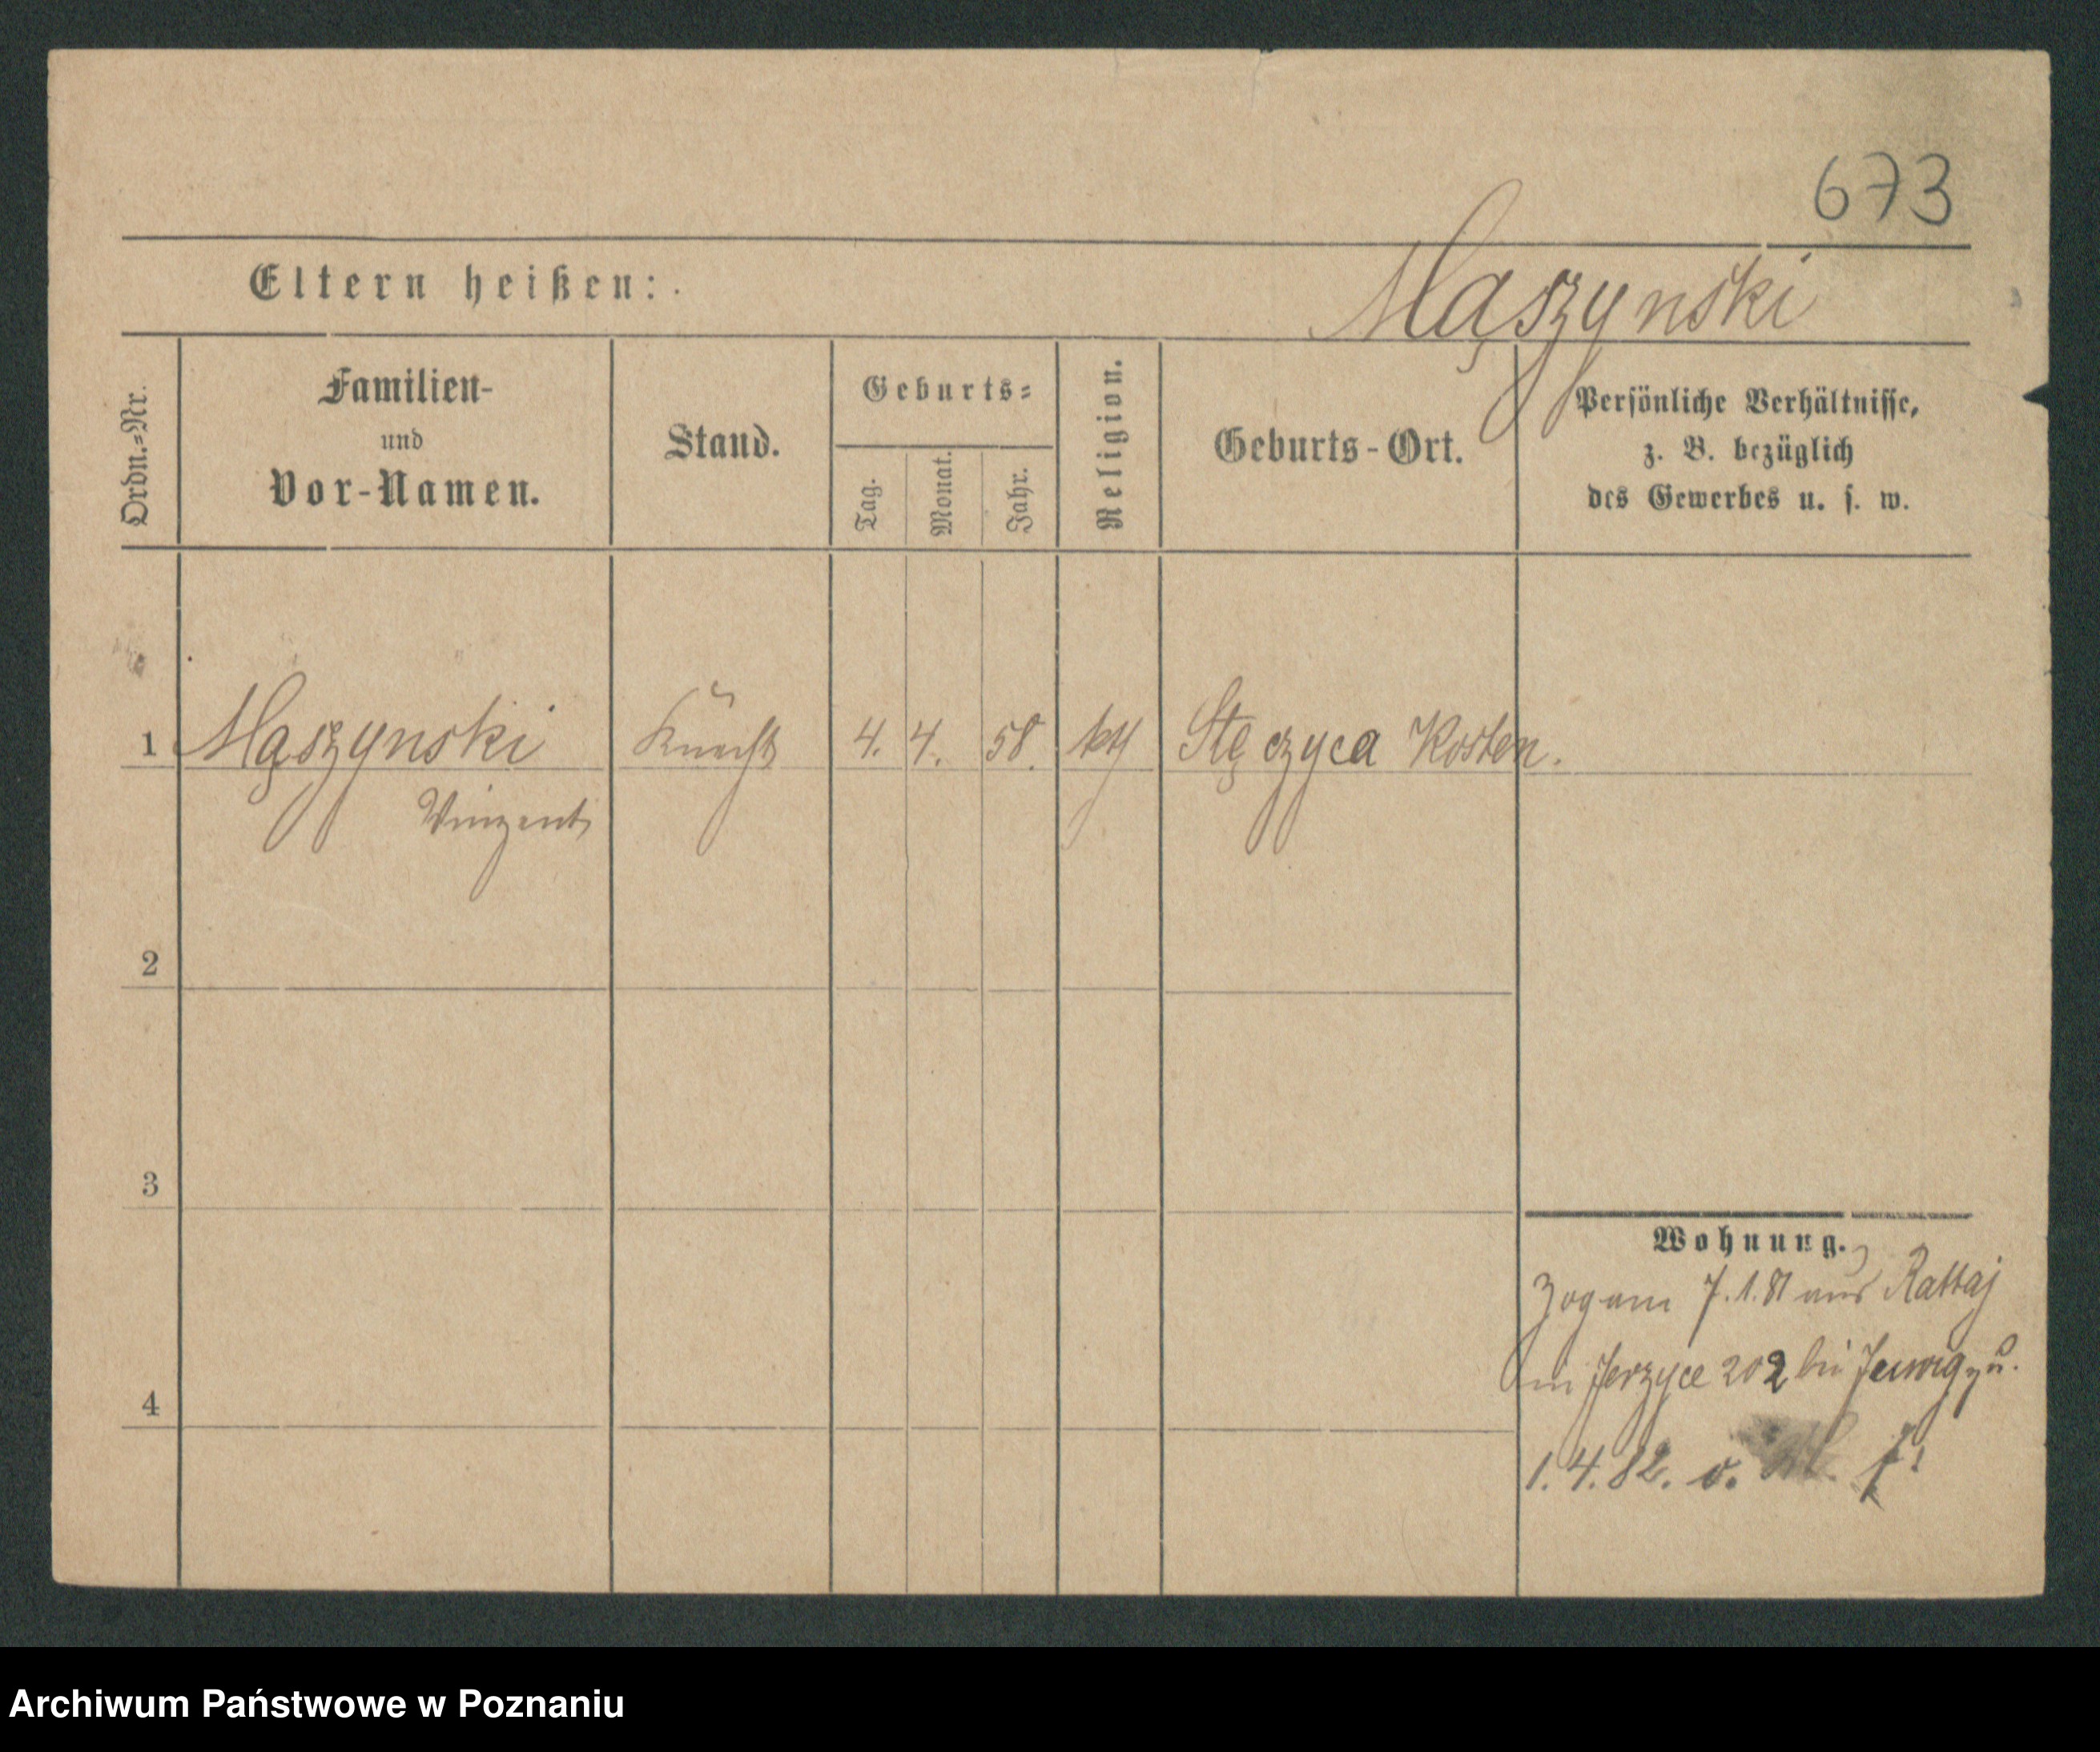 673
Eltern heißen:
Mąszynski
Ordn.=Nr.
Familien-
und
Vor-Namen.
Stand.
Geburts=
Tag.
Monat.
Jahr.
Religion.
Geburts-Ort.
Persönliche Verhältnisse,
z. B. bezüglich
des Gewerbes u. s. w.
1 Mąszynski Knecht 4. 4. 58. kth Stęczyca Kosten.
Vinzent
2
3
4
Wohnung.
Zog am 7.1.81 aus Rattaj
in Jerzyce 202 bei
1.4.82. v.
Archiwum Państwowe w Poznaniu